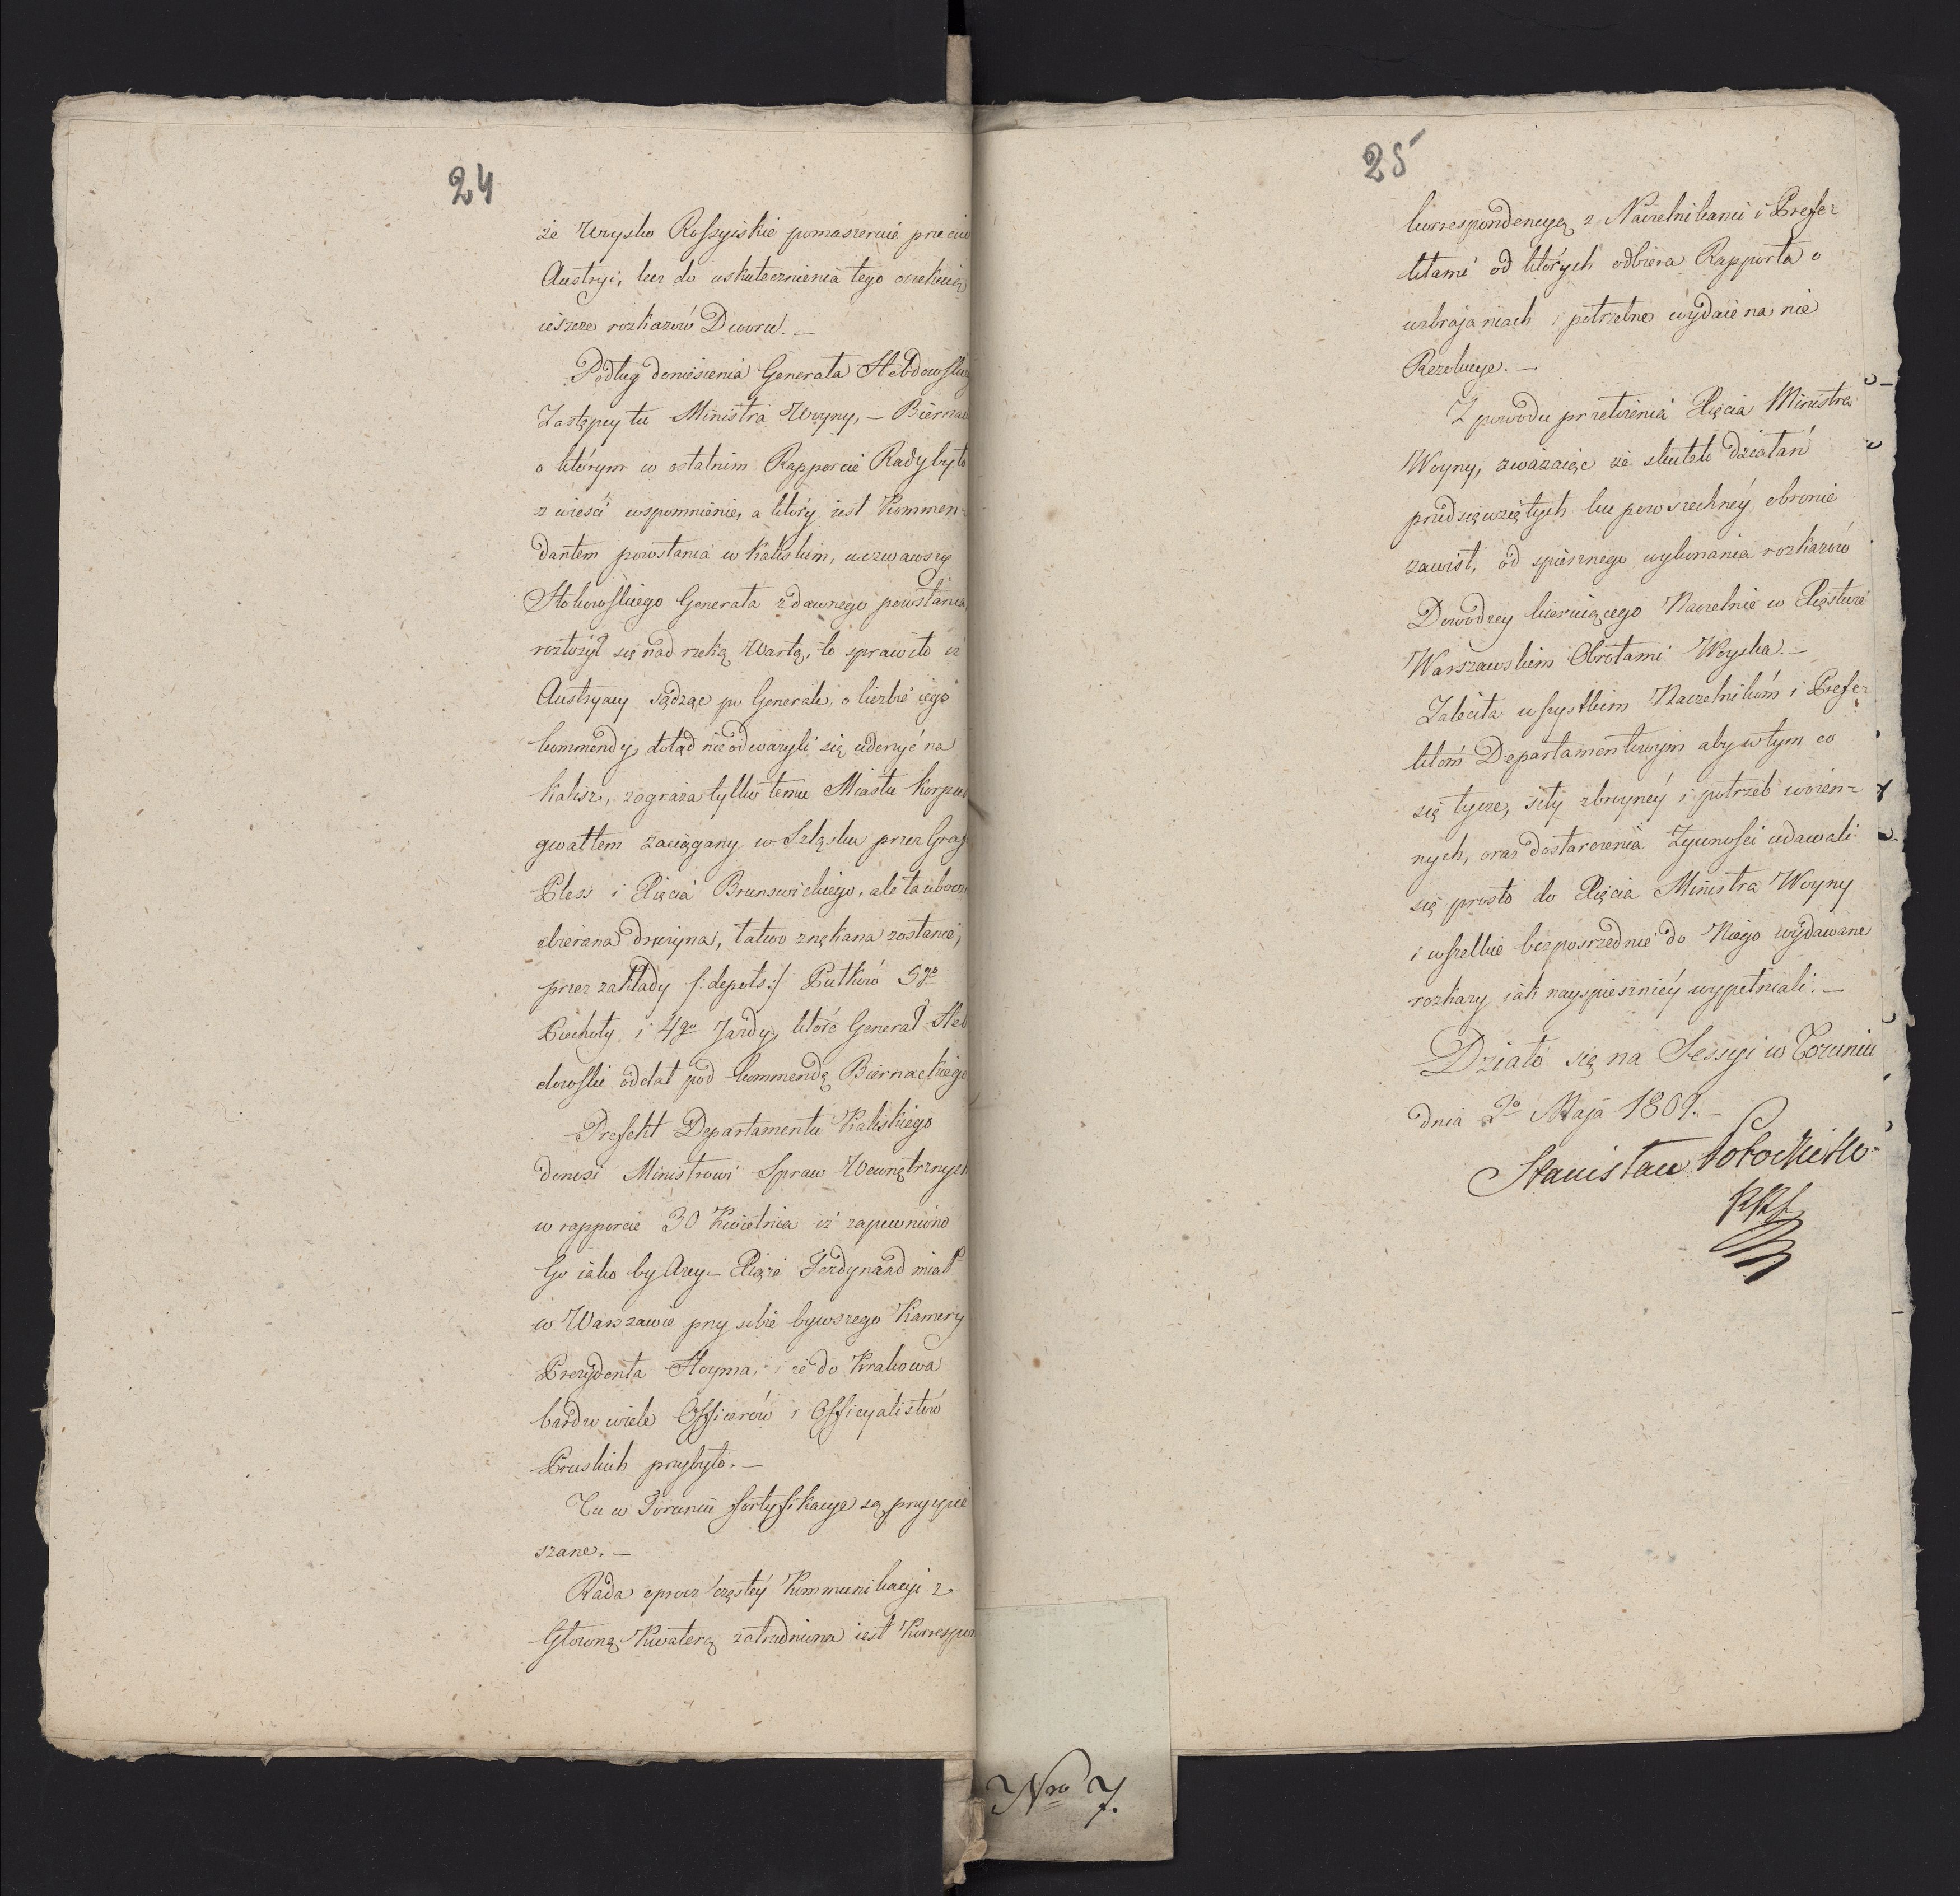 24
że Woysko Rossyiskie pomaszeruie przeciw
Austryi, lecz do uskutecznienia tego oczekuią
ieszcze rozkazów Dworu. —
Podług doniesienia Generała Hebdowskieg
Zastępcy tu Ministra Woyny, — Biernac
o którym w ostatnim Rapporcie Rady było
z wieści wspomnienie, a który iest Kommen-
dantem powstania w Kaliskim, wezwawszy
Stokowskiego Generała z dawnego powstania,
rozłożył się nad rzeką Wartą, to sprawiło iż
Austryacy sądząc po Generale, o liczbie iego
kommendy, dotąd nie odważyli się uderzyć na
Kalisz, zagraża tylko temu Miastu Korpus
gwałtem zaciągany w Szląsku przez Graf
Pless i Xięcia Brunswickiego, ale ta ubocz
zbierana drużyna, łatwo znękana zostanie,
przez zakłady /:depots:/ Pułków 5go
Piechoty i 4go Jazdy, które Generał Heb
dowski oddał pod kommendę Biernackiego
Prefekt Departamentu Kaliskiego
donosi Ministrowi Spraw Wewnętrznych
w rapporcie 30 Kwietnia iż zapewniono
Go iako by Arcy-Xiąże Ferdynand miał
w Warszawie przy sobie bywszego Kamery
Prezydenta Hoyma, i że do Krakowa
bardzo wiele Officerów i Officyalistów
Pruskich przybyło. —
Tu w Toruniu fortyfikacye są przyspie
szane. —
Rada oprocz częstey Kommunikacyi z
Główną Kwaterą zatrudniona iest Korrespon
25
korrespondencyą z Naczelnikami i Prefe-
ktami od których odbiera Rapporta o
uzbrajaniach i potrzebne wydaie na nie
Rezolucye. —
Z powodu przełożenia Xięcia Ministra
Woyny, zważaiąc że skutek działań
przedsięwziętych ku powszechney obronie
zawisł, od spiesznego wykonania rozkazów
Dowodzcy kieruiącego Naczelnie w Xięstwie
Warszawskiem Obrotami Woyska. —
Zaleciła wszystkim Naczelnikóm i Prefe-
któm Departamentowym aby w tym co
się tycze, siły zbroyney i potrzeb woien-
nych, oraz dostarczenia Żywności udawali
się prosto do Xięcia Ministra Woyny
i wszelkie bezposrzednie do Niego wydawane
rozkazy iak nayspieszniey wypełniali. —
Działo się na Sessyi w Toruniu
dnia 2o Maja 1809. —
Stanisław Potocki
Nro 7.